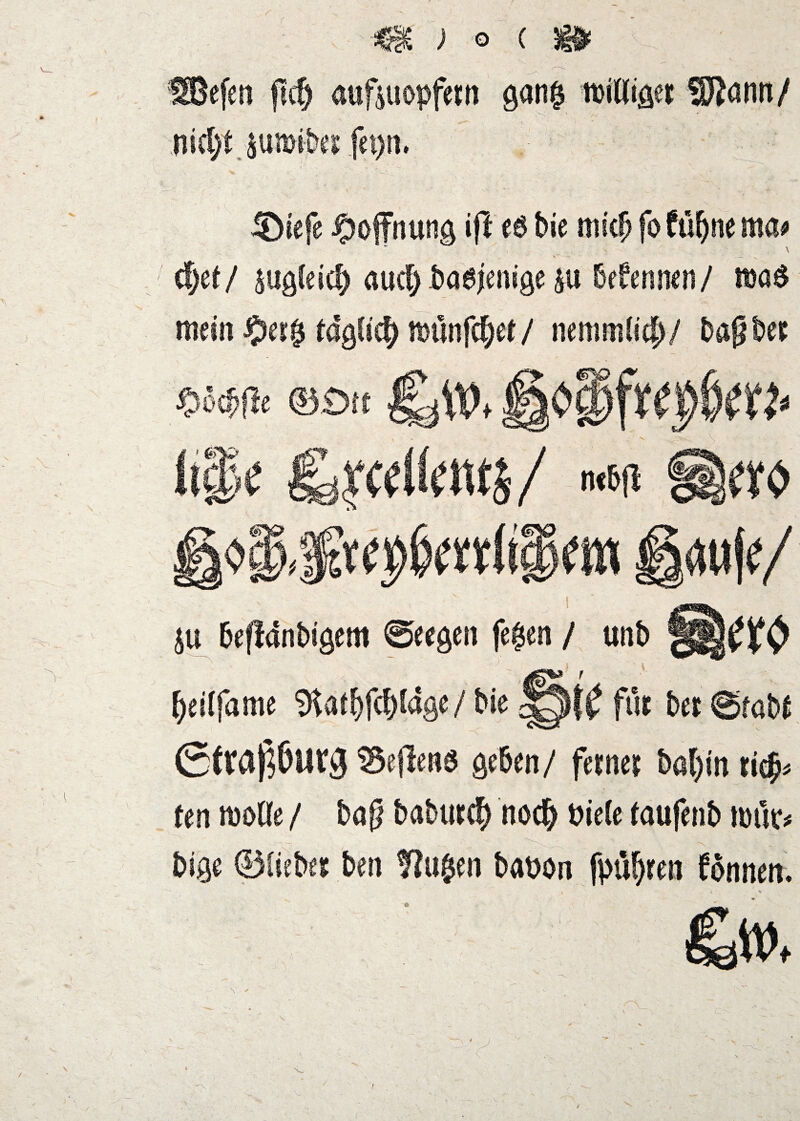 ) o (
Wesen sich aufzuopfern gantz williger Mann/
nicht zuwider seyn.
Diese Hoffnung ist es die mich so kühne ma-
chet/ zugleich auch dasjenige zu bekennen/ was
mein Hertz täglich wünschet/ nemmlich/ daß der
Höchste GOtt Ew. Hochfreyherr-
liche Excellentz/ nebst Dero
Hoch-Freyherrlichem Hause/
zu beständigem Seegen setzen/ und Dero
heilsame Rathschläge/ die Sie für der Stadt
Straßburg Bestens geben/ ferner dahin rich-
ten wolle/ daß dadurch noch viele tausend wür-
dige Glieder den Nutzen davon spühren können.
Ew.